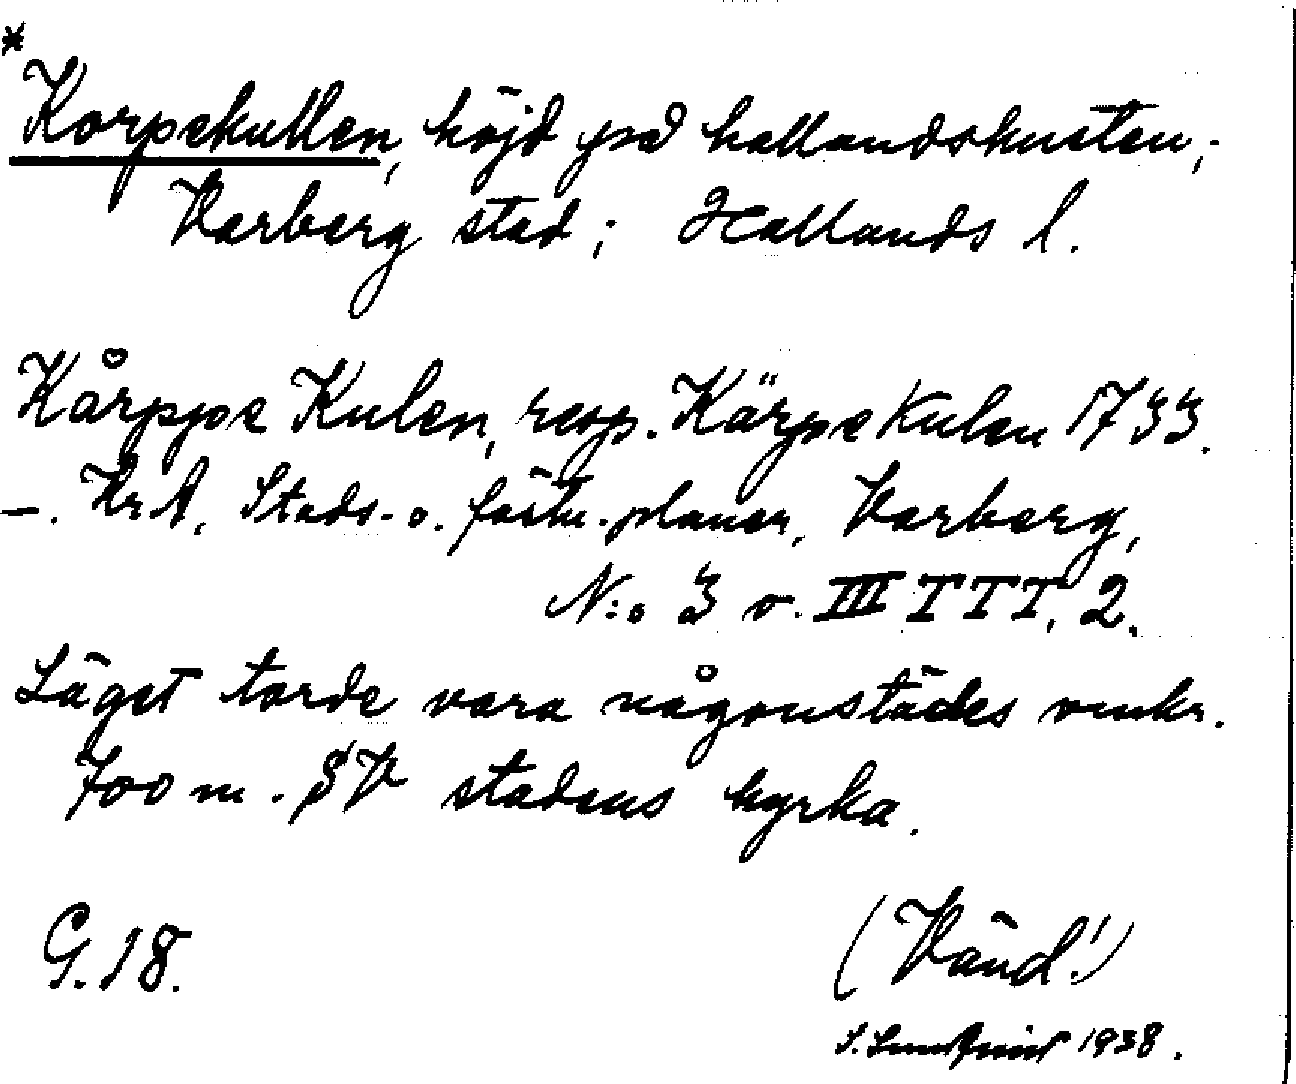 *
Korpekullen, höjd på hallandskusten,
Varberg stad; Hallands l.
Kårppe Kulen, resp. Kärpe Kulen 1733.
–. KrA, Stads- o. fästn.-planer, Varberg,
N:o 3 o. III TTT, 2.
Läget torde vara någonstädes omkr.
700 m. SV stadens kyrka.
G. 18.
(Vänd!)
S. 1938.